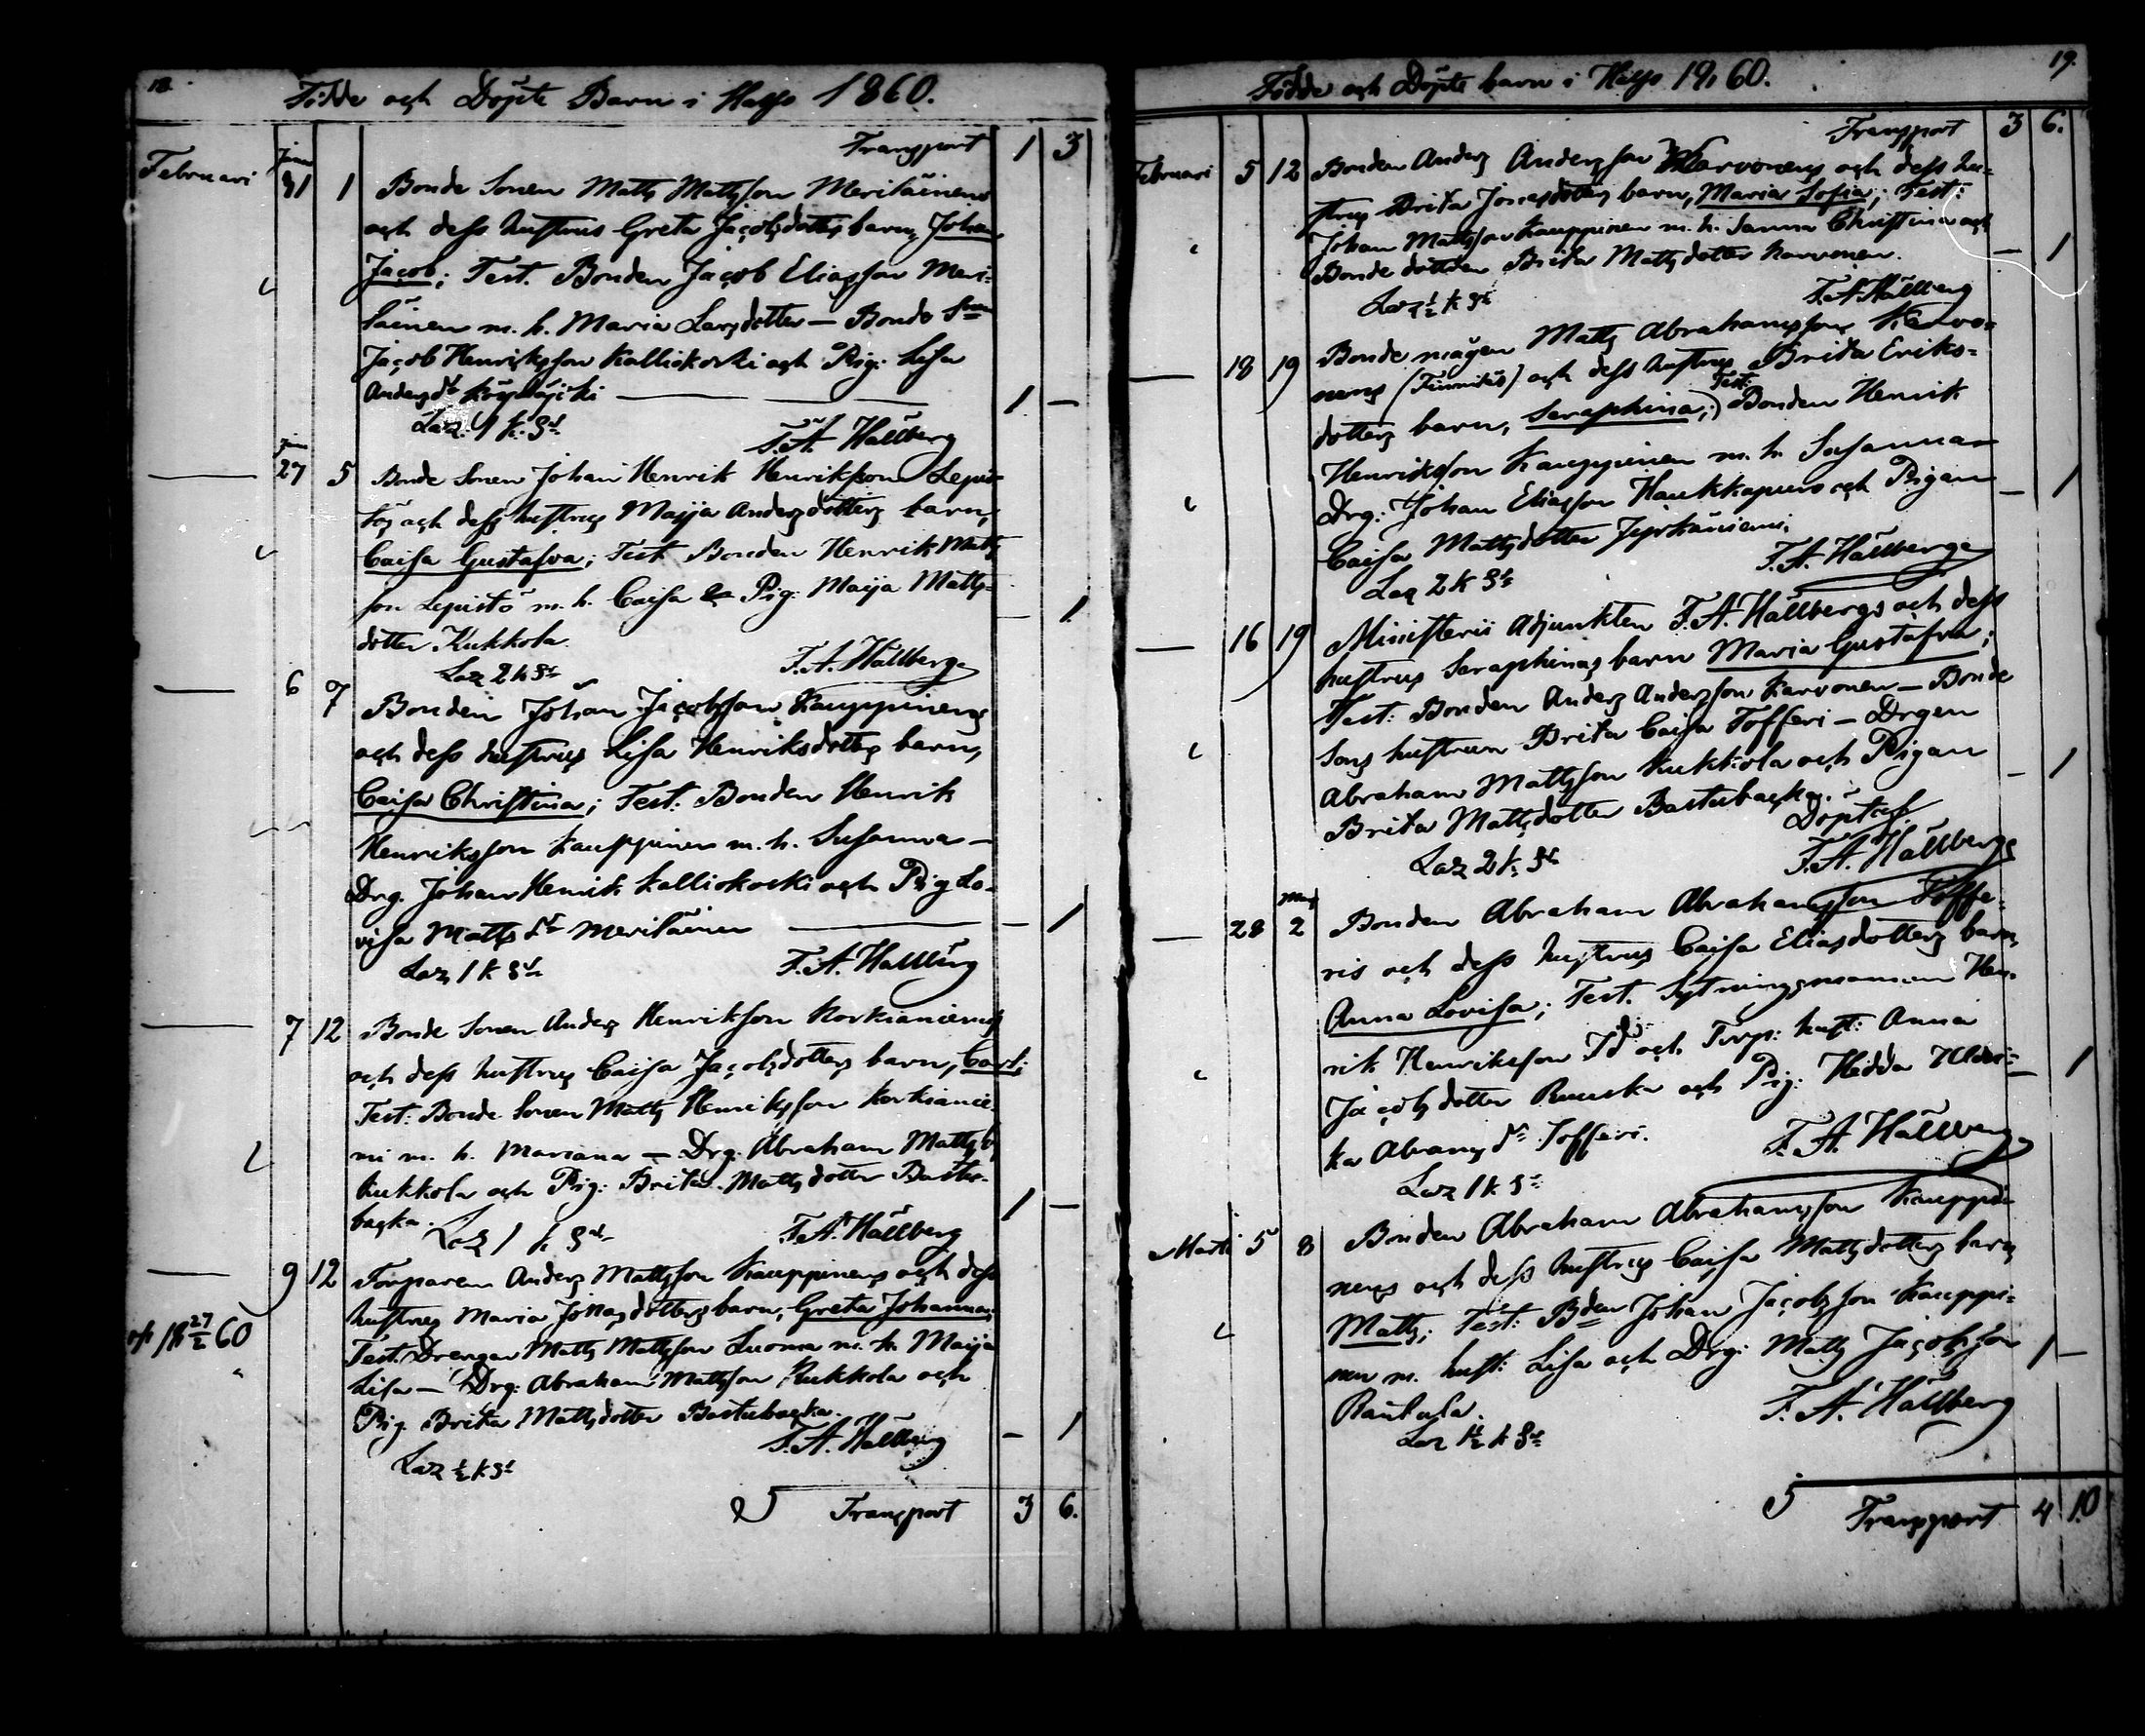 18.
Födde och Döpte Barn i Halso 1860.
Transport 1 3
Februari Janu 31 1 Bonde Sonen Matts Mattsson Meriläinens
och dess hustrus Greta Jacobsdotters barn, Johan
Jacob; Test. Bonden Jacob Eliasson Meri-
läinen m. h. Maria Larsdotter — Bonde Snen
Jacob Henriksson Kalliokoski och Pig. Lisa
Andersdr — 1 —
Laz. 1 k. Sr F. A. Hällberg
— Janu 27 5 Bonde Sonen Johan Henrik Henriksson Lepis-
tös och dess hustrus Maija Andersdotters barn,
Caisa Gustafva; Test. Bonden Henrik Matts-
son Lepistö m. h. Caisa & Pig: Maija Matts-
dotter Kukkola. — 1
Laz 2 k Sr F. A. Hällberg
— 6 7 Bonden Johan Jacobsson Kauppinens
och dess hustrus Lisa Henriksdotters barn,
Caisa Christina; Test: Bonden Henrik
Henriksson Kauppinen m. h. Susanna —
Drg. Johan Henrik Kalliokoski och Pig Lo-
visa Matts dr Meriläinen — — 1
Laz 1 k Sr F. A. Hällberg
— 7 12 Bonde Sonen Anders Henrikson Korkianiemis
och dess hustrus Caisa Jacobsdotters barn, Carl;
Test: Bonde Sonen Matts Henriksson Korkianie-
mi m. h. Mariana — Drg. Abraham Matts s.
Kukkola och Pig: Brita Matts dotter Bastu-
backa. 1 —
Laz 1 k Sr F. A. Hällberg
— 9 12 Torparen Anders Mattsson Kauppinens och dess
hustrus Maria Jonasdotters barn, Greta Johanna;
27/2 60
Test. Drengen Matts Mattsson Luoma m. h. Maija
Lisa — Drg: Abraham Mattsson Kukkola och
Pig. Brita Mattsdotter Bastubacka. — 1
F. A. Hällberg
Laz ½ k Sr
5 Transport 3 6.
19.
Födde och Döpte barn i Halso 1860.
Transport 3 6.
Februari 5 12 Bonden Anders Andersson Karvonens och dess hu-
strus Brita Jonasdotters barn, Maria Sofia; Test:
Johan Mattsson Kauppinen m. h. Sanna Christina och
Bonde dottren Brita Mattsdotter Karvonen. — 1
Laz ½ k Sr F. A. Hällberg
— 18 19 Bonde mågen Matts Abrahamsson Karvo-
nens och dess hustrus Brita Eriks-
dotters barn, Seraphina; Test: Bonden Henrik
Henriksson Kauppinen m. h. Susanna —
Drg: Johan Eliasson Haukkapuro och Pigan — 1
Caisa Mattsdotter Jyrkäniemi.
Laz 2 k Sr F. A. Hällberg
— 16 19 Ministerii Adjunkten F. A. Hällbergs och dess
hustrus Seraphinas barn Maria Gustafva;
Test: Bonden Anders Andersson Karvonen — Bonde
Sons hustrun Brita Caisa Tofferi — Drgen
Abraham Mattsson Kukkola och Pigan — 1
Brita Mattsdotter Bastubacka.
Döpt af
Laz 2 k Sr F. A. Hällberg
— 28 Mars 2 Bonden Abraham Abrahamsson Toffe-
ris och dess hustrus Caisa Eliasdotters barn,
Anna Lovisa; Test. Sytningsmannen Hen-
rik Henriksson Td och Torp: hust: Anna
Jacobsdotter Ruuska och Pig: Hedda Ulri- — 1
ka Abramsdr Tofferi.
Laz 1 k Sr F. A. Hällberg
Marti 5 8 Bonden Abraham Abrahamsson Kauppi-
nens och dess hustrus Caisa Mattsdotters barn
Matts; Test: Bden Johan Jacobsson Kauppi-
nen m. hust: Lisa och Drg: Matts Jacobsson 1 —
Rautala.
Laz 1½ k Sr F. A. Hällberg
5 Transport 4 10